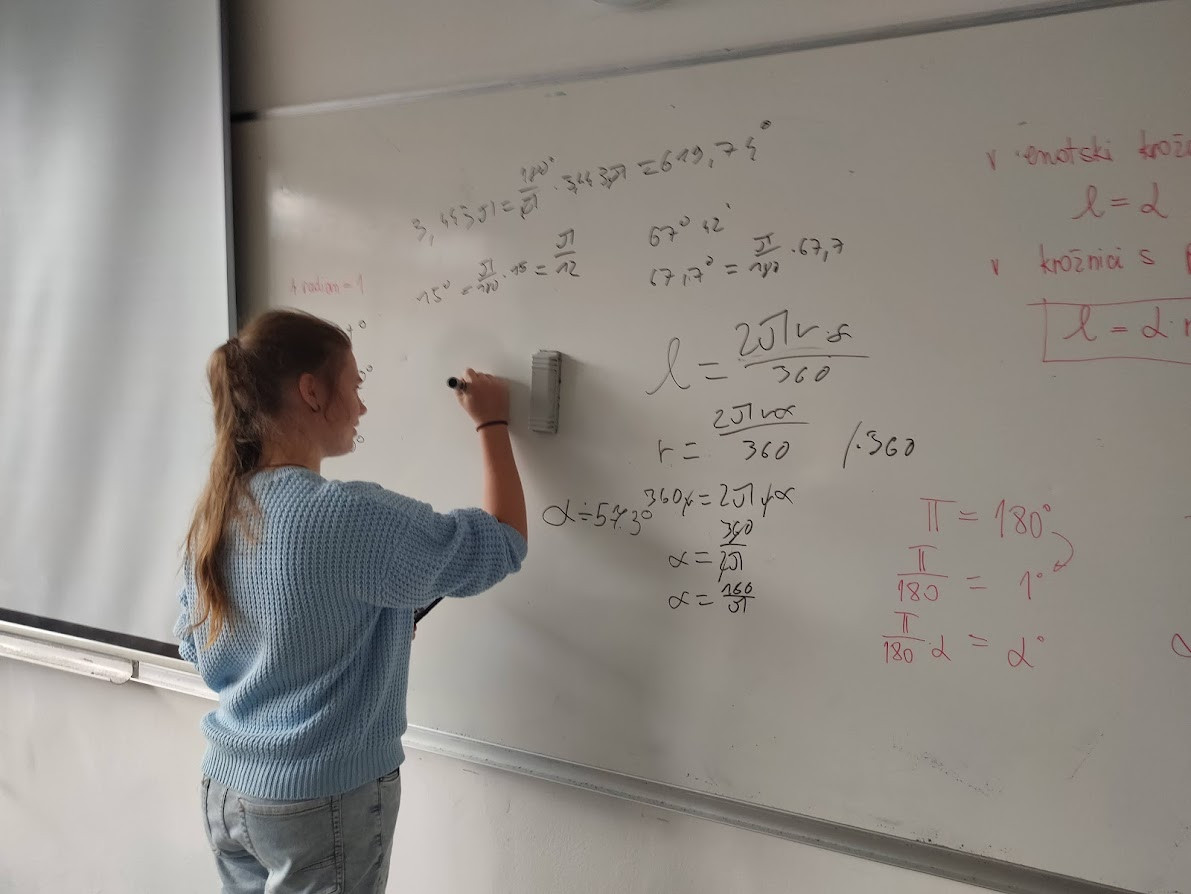 3,443π = 180°/π · 3,443π = 619,74°
15° = π/180 · 15 = π/12
67° 42'
67,7° = π/180 · 67,7
1 radian = 1
l = 2πr·α/360
r = 2πrα/360 /·360
360r = 2πrα
α ≐ 57,3°
α = 360/2π
α = 180/π
v enotski
l = α
v krožnici s
l = α·r
π = 180°
π/180 = 1°
π/180 · α = α°